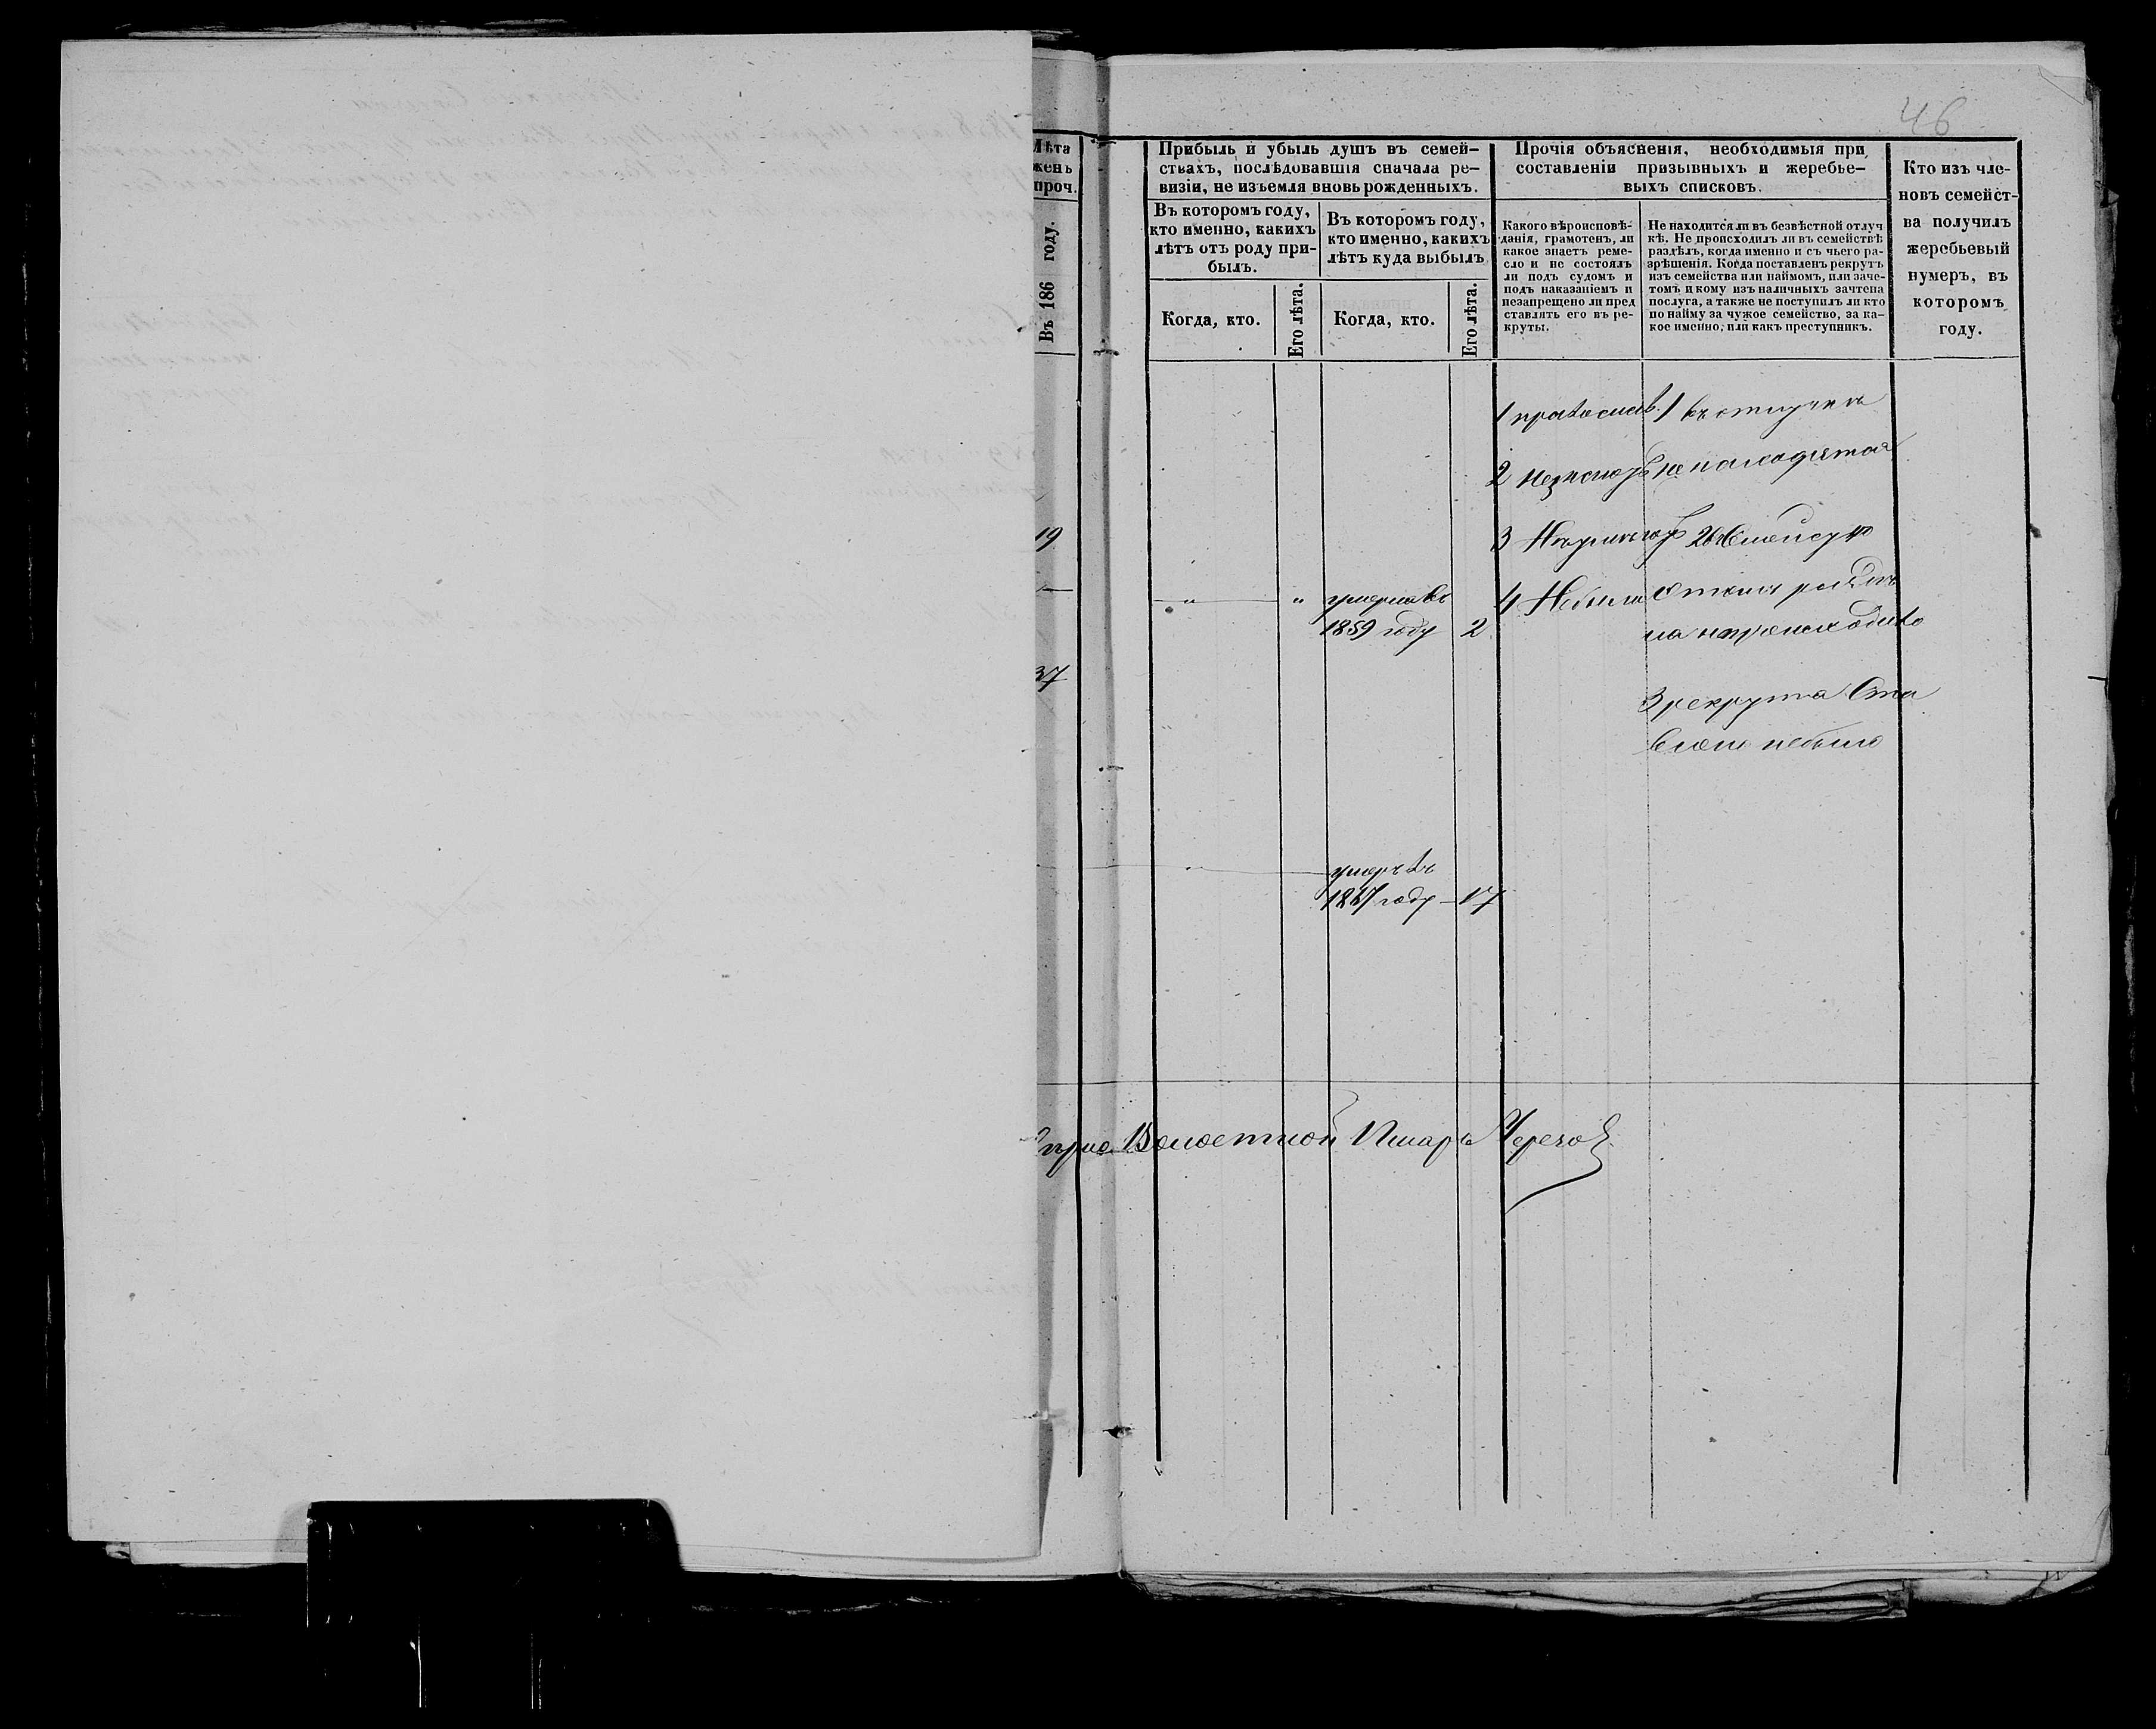 46
Лѣта
жень
проч.
Въ 186 году.
Прибыль и убыль душъ въ семей-
ствахъ, послѣдовавшія сначала ре-
визіи, не изъемля вновь рожденныхъ.
Въ которомъ году,
кто именно, какихъ
лѣтъ отъ роду при-
былъ.
Въ которомъ году,
кто именно, какихъ
лѣтъ куда выбылъ
Когда, кто.
Его лѣта.
Когда, кто.
Его лѣта.
Прочія объясненія, необходимыя при
составленіи призывныхъ и жеребье-
выхъ списковъ.
Какого вѣроисповѣ-
данія, грамотенъ, ли
какое знаетъ реме-
сло и не состоялъ
ли подъ судомъ и
подъ наказаніемъ и
незапрещено ли пред
ставлять его въ ре-
круты.
Не находится ли въ безвѣстной отлуч
кѣ. Не происходилъ ли въ семействѣ
раздѣлъ, когда именно и съ чьего ра-
зрѣшенія. Когда поставленъ рекрутъ
изъ семейства или наймомъ, или заче-
томъ и кому изъ наличныхъ зачтена
послуга, а также не поступилъ ли кто
по найму за чужое семейство, за ка-
кое именно, или какъ преступникъ.
Кто изъ чле-
новъ семейст-
ва получилъ
жеребьевый
нумеръ, въ
которомъ
году.
19
37
умерла въ
1859 году 2
умеръ въ
году 17
1 православ.
2
3
4 Небыли
1 въ отлучкѣ
не находятся
2
на непроисходило
3 рекрута Ста
влено небыло
Волостной Писарь